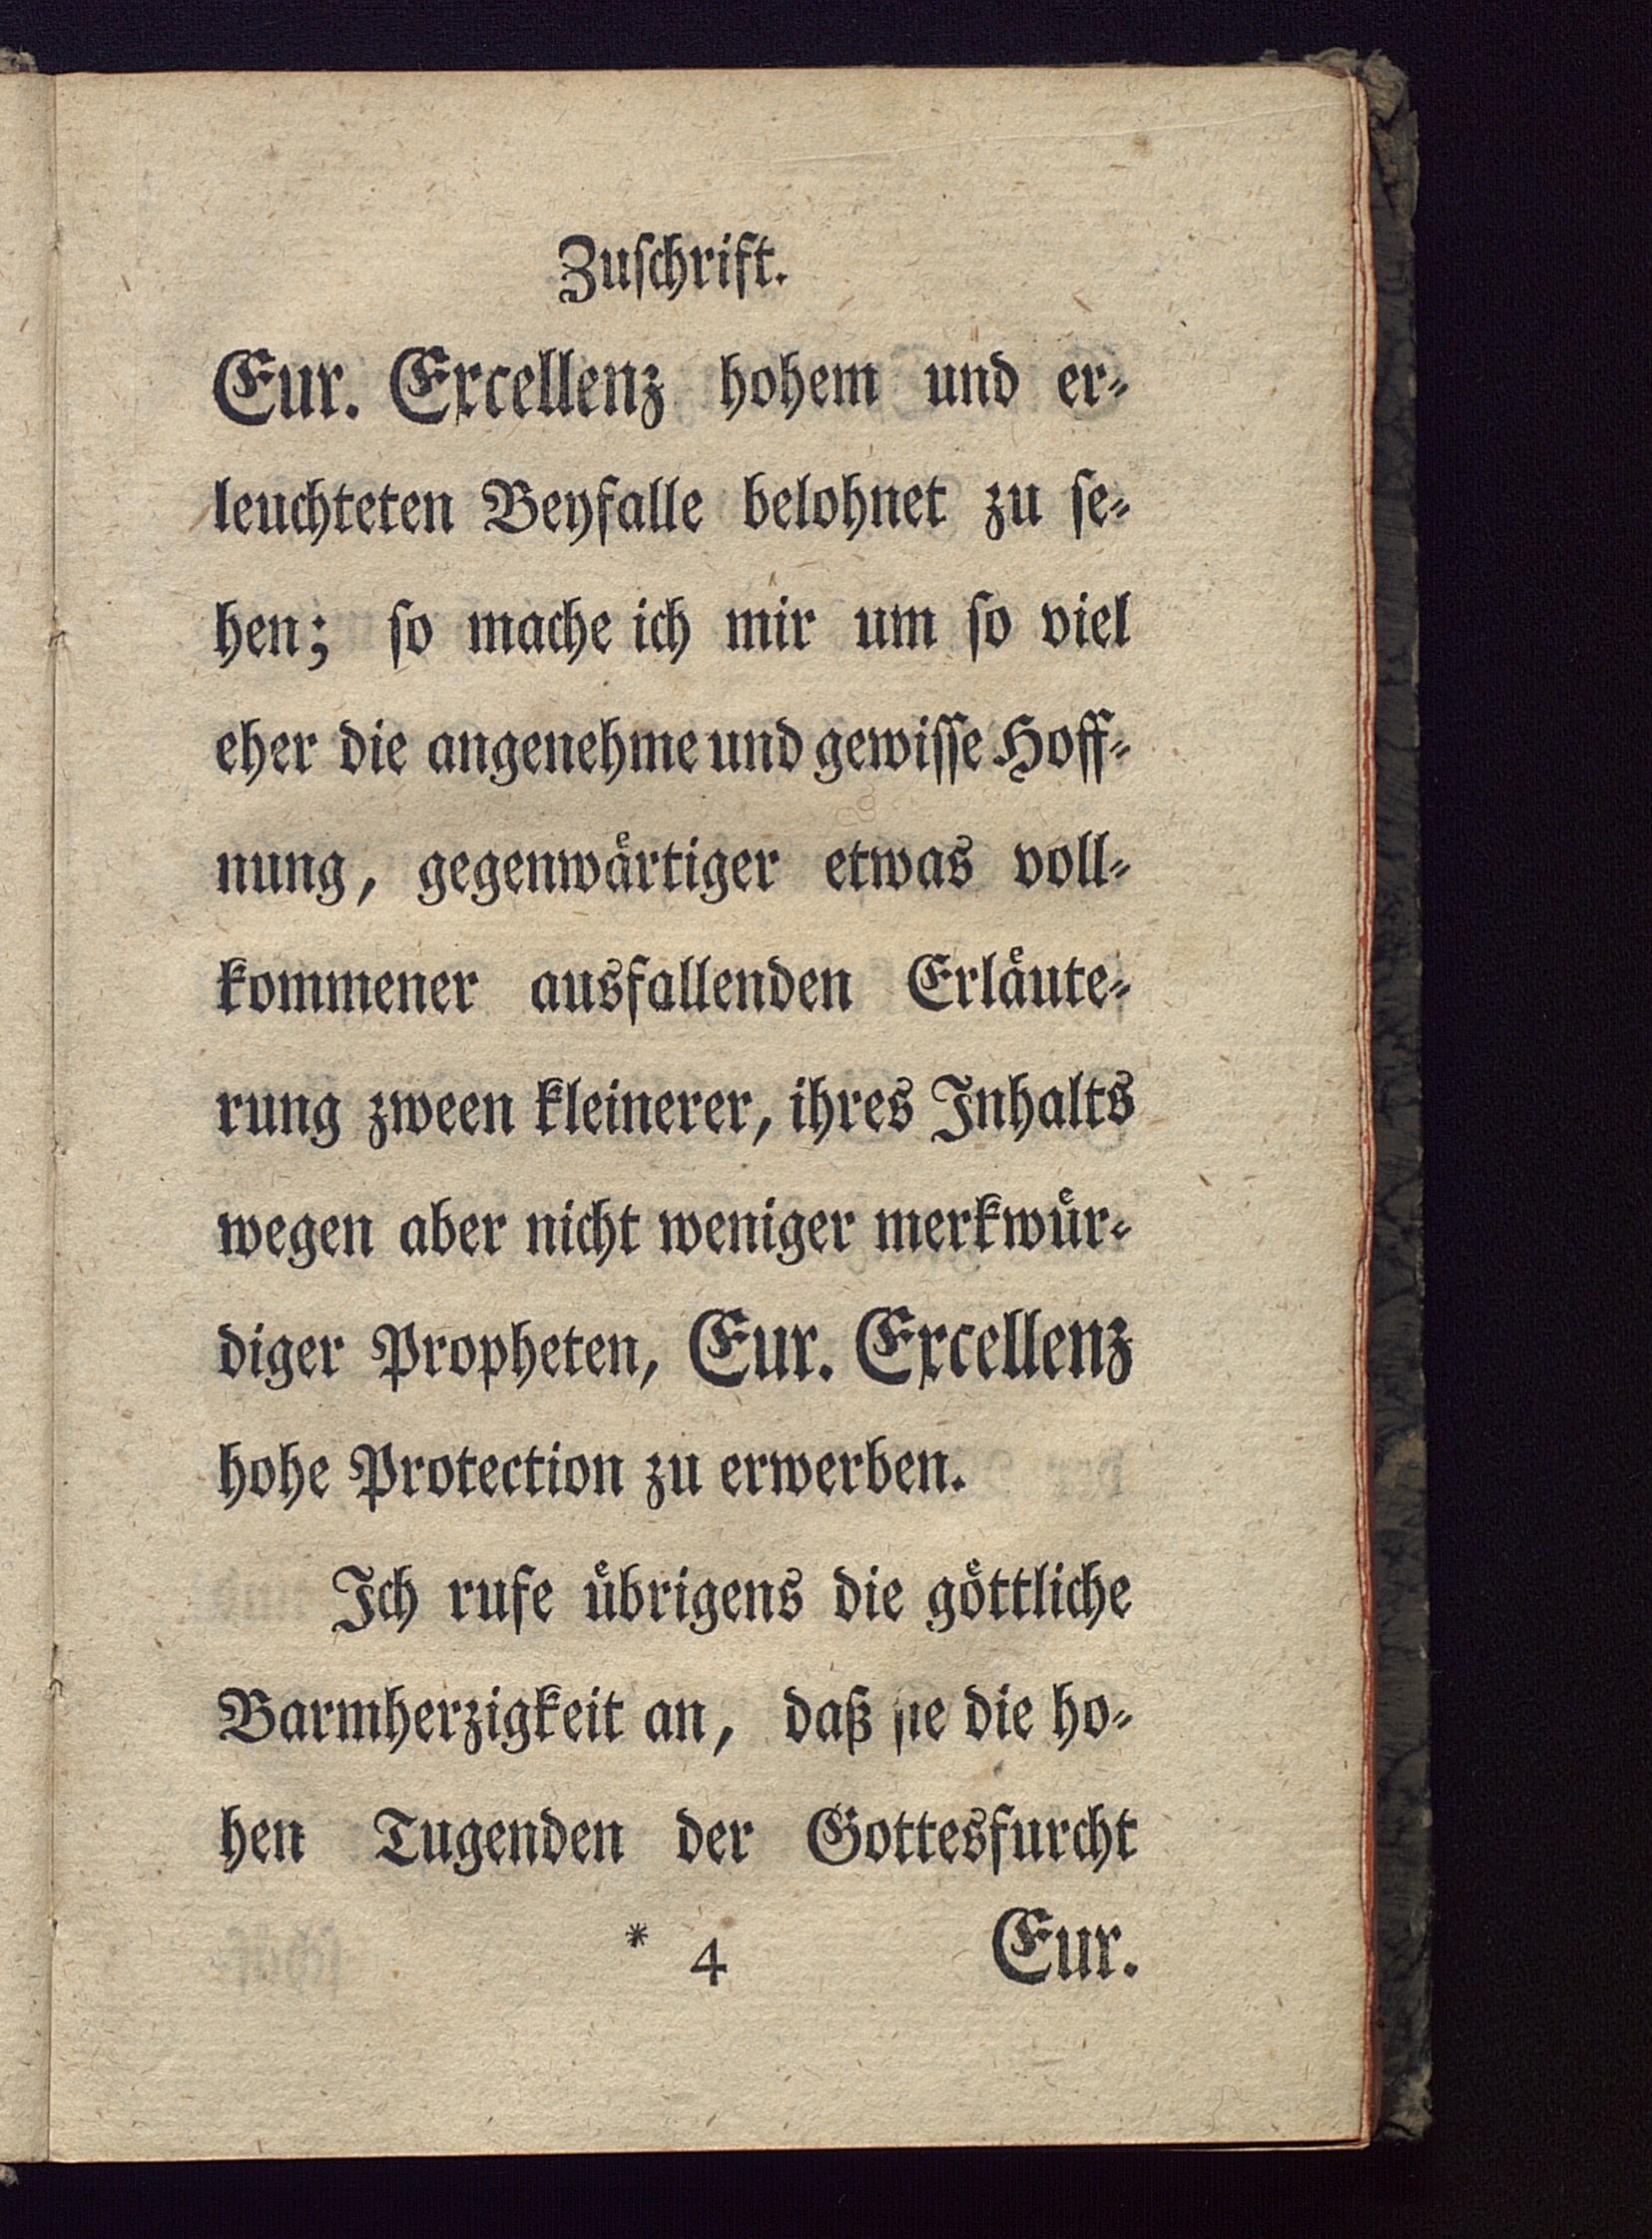 Zuſchrift.
Eur. Excellenz hohem und er⸗
leuchteten Beyfalle belohnet zu ſe⸗
hen; ſo mache ich mir um ſo viel
eher die angenehme und gewiſſe Hoff⸗
nung, gegenwaͤrtiger etwas voll⸗
kommener ausfallenden Erlaͤute⸗
rung zween kleinerer, ihres Inhalts
wegen aber nicht weniger merkwuͤr⸗
diger Propheten, Eur. Excellenz
hohe Protection zu erwerben.
Ich rufe uͤbrigens die goͤttliche
Barmherzigkeit an, daß ſie die ho⸗
hen Tugenden der Gottesfurcht
* 4 Eur.